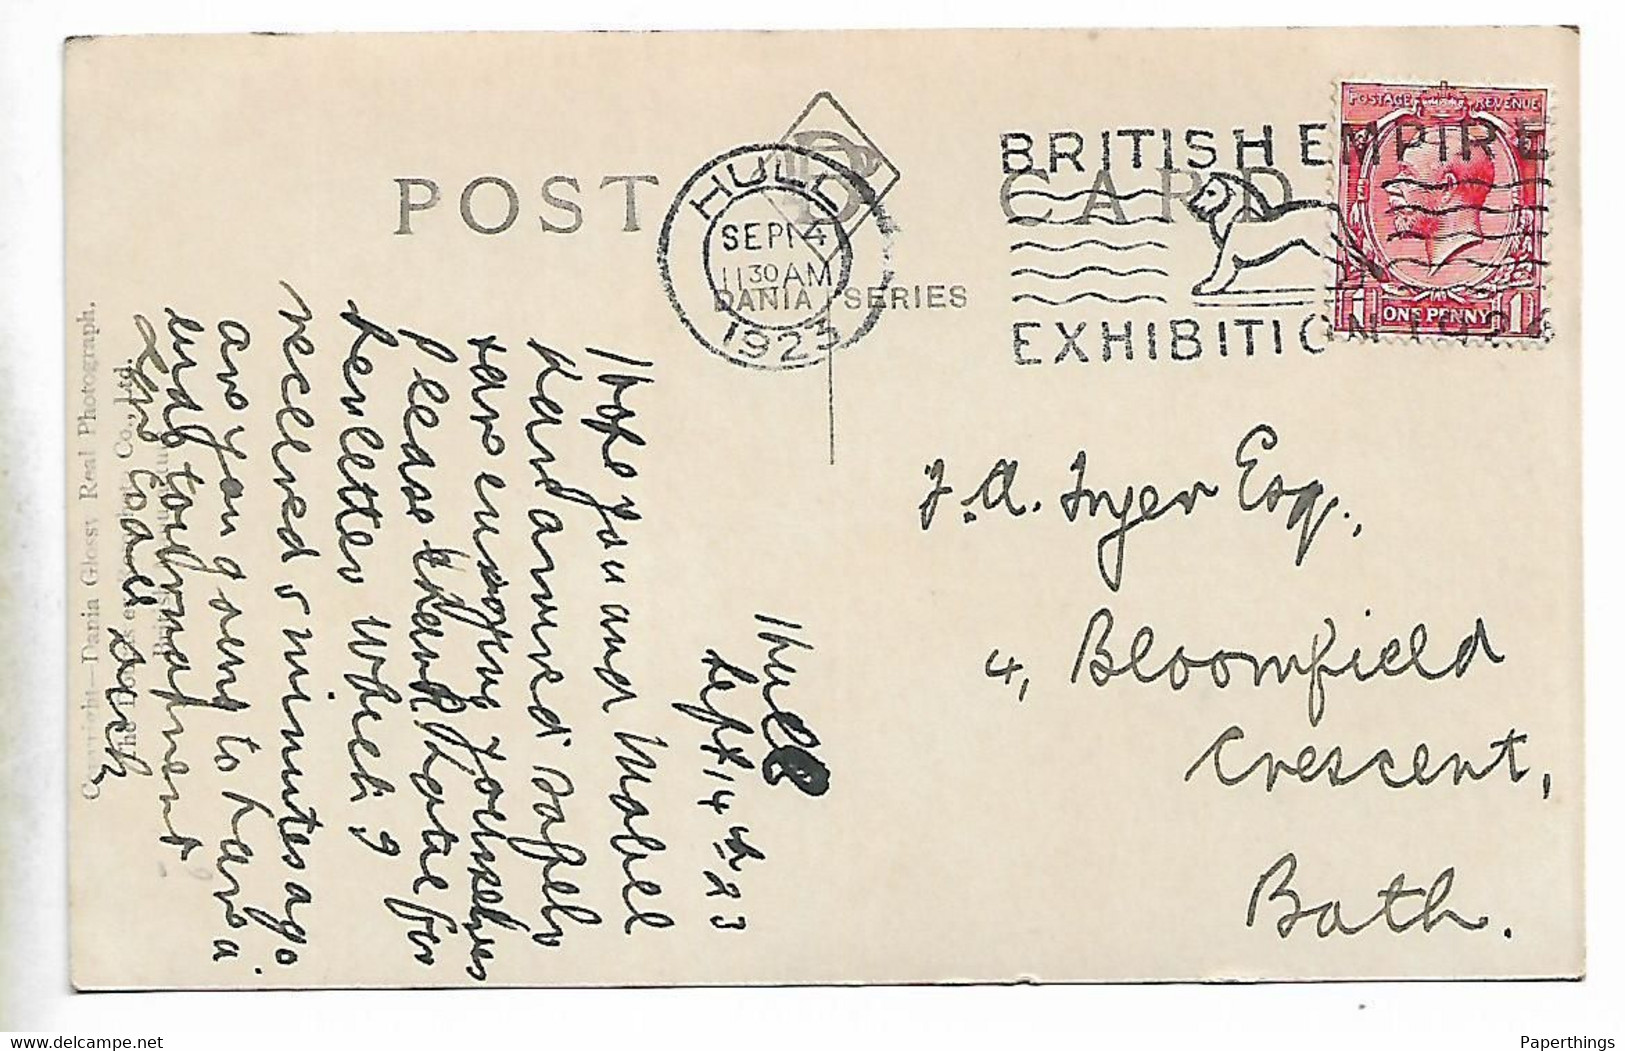 POST CARD
HULL
SEP 14
11 30 AM
1923
DANIA SERIES
BRITISH EMPIRE
EXHIBITION 1924
POSTAGE REVENUE
1 ONE PENNY 1
Hull
Sept 14th 23
I hope you and Mabel
have arrived safely
& are enjoying yourselves
Please thank Katie for
her letter which I
received 5 minutes ago
are you going to have a
tournament
J. A. Inger Esq.,
4, Bloomfield
Crescent,
Bath.
Copyright—Dania Glossy Real Photograph.
Co., Ltd.
delcampe.net
Paperthings